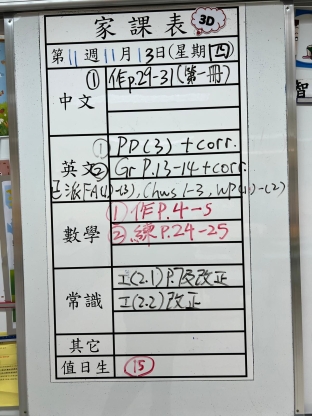 家課表 3D
第11週11月13日(星期四)
中文 ① 作p.29-31(第一冊)
① PD(3) + corr.
英文 ② Gr P.13-14 + corr.
已派FA(1)-(3), Chws 1-3, WP(1)-(2)
① 作P.4-5
數學 ② 練P.24-25
常識 工(2.1)P.8改正
工(2.2)改正
其它
值日生 15
智